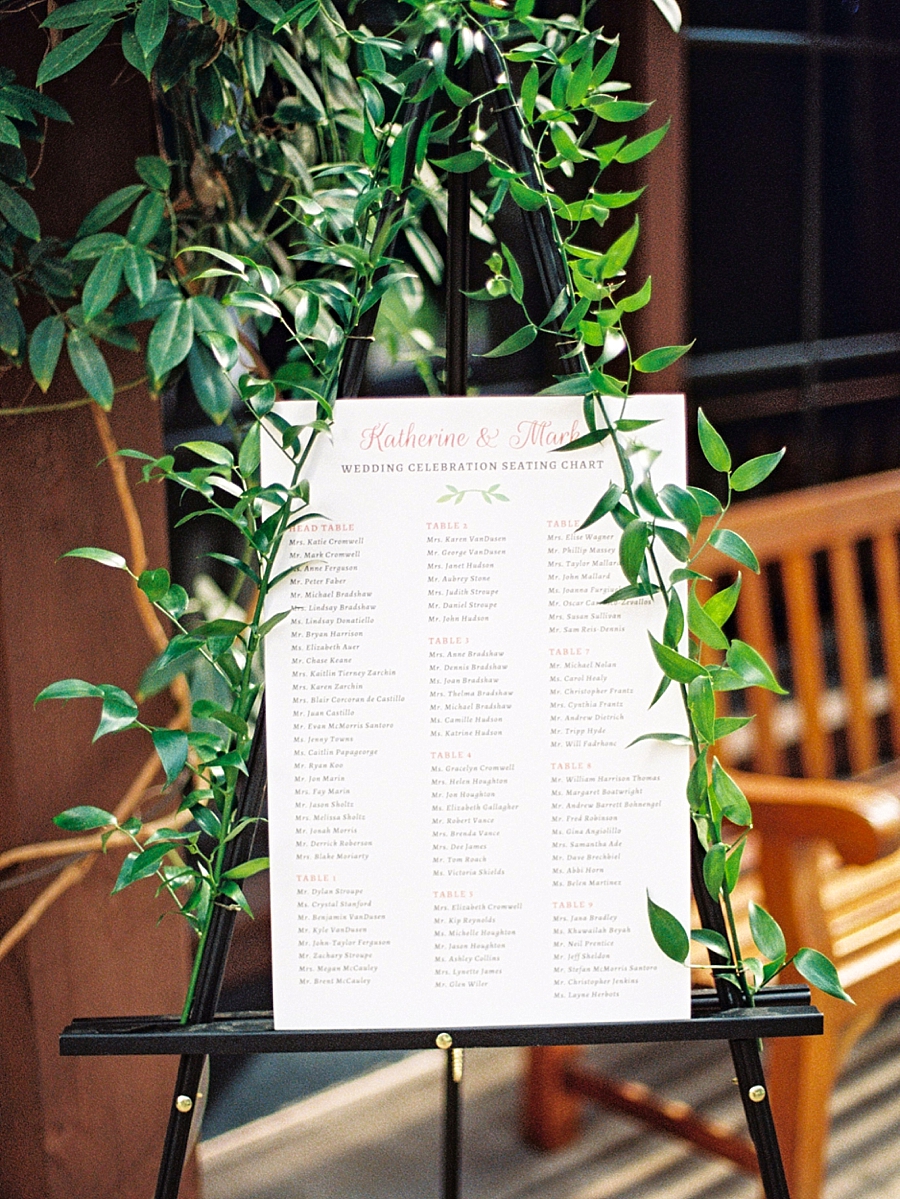 Katherine & Mark
WEDDING CELEBRATION SEATING CHART
HEAD TABLE
Mrs. Katie Cromwell
Mr. Mark Cromwell
Ms. Anne Ferguson
Mr. Peter Faber
Mr. Michael Bradshaw
Mrs. Lindsay Bradshaw
Ms. Lindsay Donatiello
Mr. Bryan Harrison
Ms. Elizabeth Auer
Mr. Chase Keane
Ms. Kaitlin Tierney Zarchin
Mrs. Karen Zarchin
Mrs. Blair Corcoran de Castillo
Mr. Juan Castillo
Mr. Evan McMorris Santoro
Ms. Jenny Towns
Ms. Caitlin Papageorge
Mr. Ryan Koe
Mr. Jon Marin
Mrs. Fay Marin
Mr. Jason Sholtz
Mrs. Melissa Sholtz
Mr. Jonah Morris
Mr. Derrick Roberson
Mrs. Blake Moriarty
TABLE 1
Mr. Dylan Stroupe
Ms. Crystal Stanford
Mr. Benjamin VanDusen
Mr. Kyle VanDusen
Mr. John-Taylor Ferguson
Mr. Zachary Stroupe
Mrs. Megan McCauley
Mr. Brent McCauley
TABLE 2
Mrs. Karen VanDusen
Mr. George VanDusen
Mrs. Janet Hudson
Mr. Aubrey Stone
Mrs. Judith Stroupe
Mr. Daniel Stroupe
Mr. John Hudson
TABLE 3
Mrs. Anne Bradshaw
Mr. Dennis Bradshaw
Ms. Joan Bradshaw
Mrs. Thelma Bradshaw
Mr. Michael Bradshaw
Ms. Camille Hudson
Ms. Katrine Hudson
TABLE 4
Ms. Gracelyn Cromwell
Mrs. Helen Houghton
Mr. Jon Houghton
Ms. Elizabeth Gallagher
Mr. Robert Vance
Mrs. Brenda Vance
Mrs. Dee James
Mr. Tom Roach
Ms. Victoria Shields
TABLE 5
Mrs. Elizabeth Cromwell
Mr. Kip Reynolds
Ms. Michelle Houghton
Mr. Jason Houghton
Ms. Ashley Collins
Mrs. Lynette James
Mr. Glen Wiler
TABLE
Mrs. Elise Wagner
Mr. Phillip Massey
Mrs. Taylor Mallard
Mr. John Mallard
Ms. Joanna
Mr. Oscar Zevallos
Mrs. Susan Sullivan
Mr. Sam Reis-Dennis
TABLE 7
Mr. Michael Nolan
Ms. Carol Healy
Mr. Christopher Frantz
Mrs. Cynthia Frantz
Mr. Andrew Dietrich
Mr. Tripp Hyde
Mr. Will Fadrhonc
TABLE 8
Mr. William Harrison Thomas
Ms. Margaret Boatwright
Mr. Andrew Barrett Bohnengel
Mr. Fred Robinson
Ms. Gina Angiolillo
Mrs. Samantha Ade
Mr. Dave Brechbiel
Ms. Abbi Horn
Ms. Belen Martinez
TABLE 9
Mrs. Jana Bradley
Ms. Khuwailah Beyah
Mr. Neil Prentice
Mr. Jeff Sheldon
Mr. Stefan McMorris Santoro
Mr. Christopher Jenkins
Ms. Layne Herbots